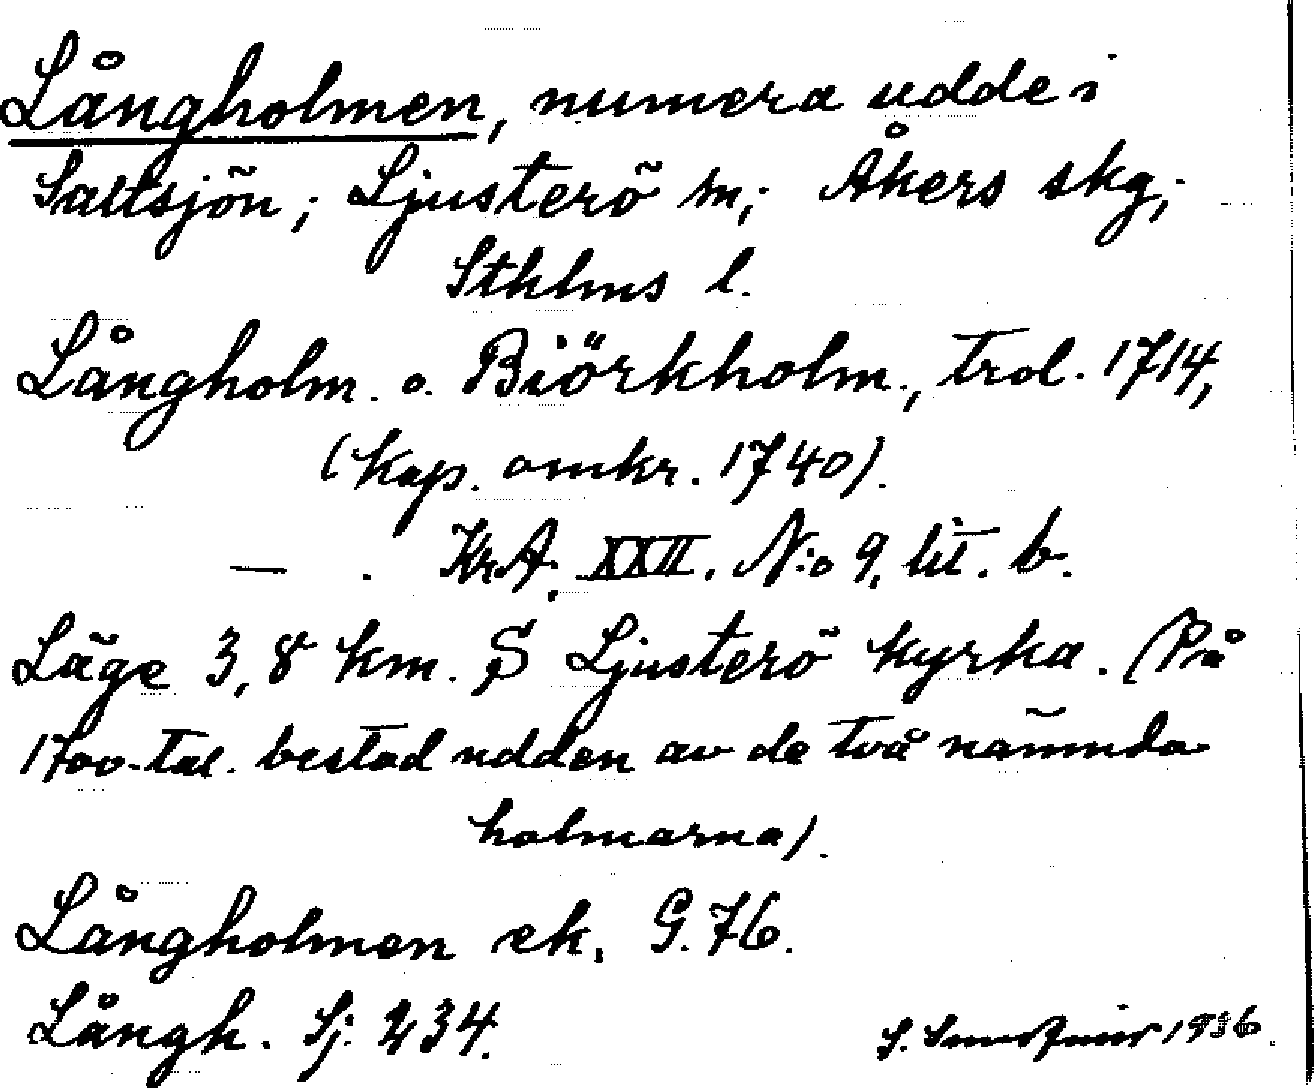 Långholmen, numera udde i
Saltsjön; Ljusterö sn; Åkers skg;
Sthlms l.
Långholm. o. Biörkholm., trol. 1714,
(Kop. omkr. 1740).
— . KrA. XXII. N:o 9, lit. b.
Läge 3,8 km. S Ljusterö kyrka. (På
1700-tal. bestod udden av de två nämnda
holmarna).
Långholmen ek. G. 76.
Långh. Sj: 234.
S. 1936.